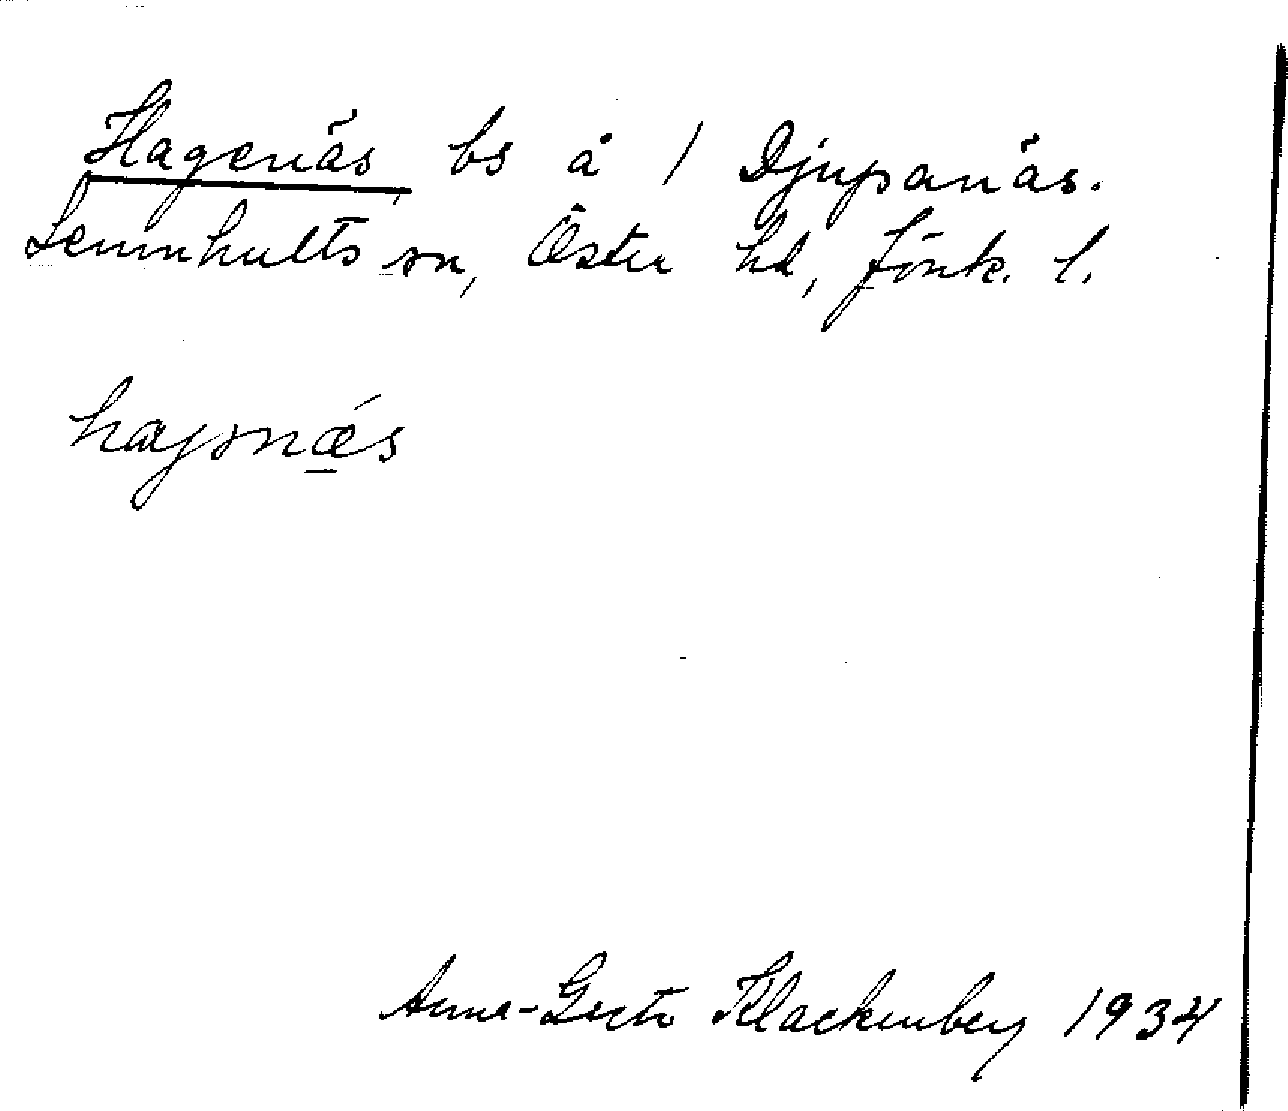 Hagenäs, bs å 1 Djupanäs.
Lemnhults sn, Östra hd, Jönk. l.
hajonǽ̲s
Anna-Greta Klackenberg 1934